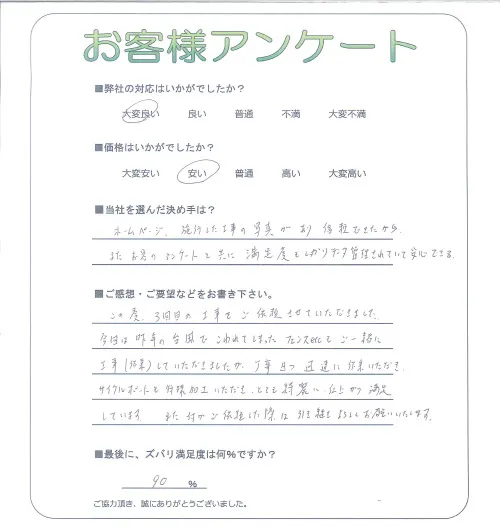 お客様アンケート
■弊社の対応はいかがでしたか？
大変良い 良い 普通 不満 大変不満
■価格はいかがでしたか？
大変安い 安い 普通 高い 大変高い
■当社を選んだ決め手は？
ホームページ、施行した工事の写真があり 信頼できたから。
またお客のアンケートと共に 満足度もしっかりデータ管理されていて安心できる
■ご感想・ご要望などをお書き下さい。
この度、3回目の工事をご依頼させていただきました。
今回は昨年の台風でこわれてしまった フェンスetcもご一緒に
工事(作業)していただきましたが、丁寧且つ迅速に作業いただき、
サイクルポートも 加工いただき、とても綺麗に仕上がり満足
しています。 また何かご依頼した際は 引き続きよろしくお願いいたします。
■最後に、ズバリ満足度は何％ですか？
90 ％
ご協力頂き、誠にありがとうございました。